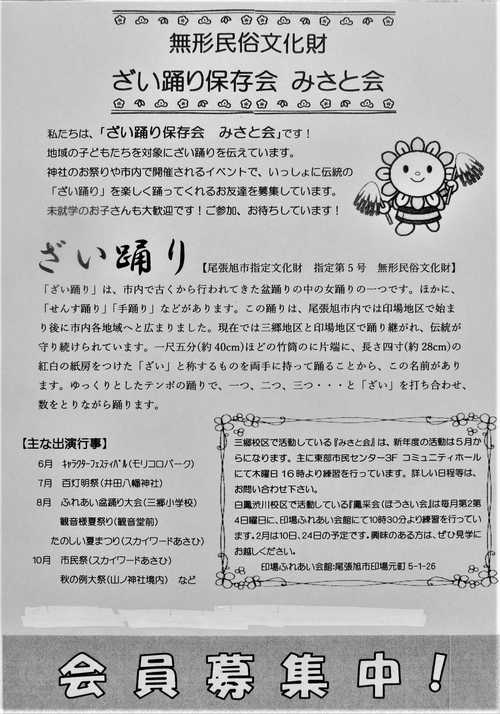 無形民俗文化財
ざい踊り保存会 みさと会
私たちは、「ざい踊り保存会 みさと会」です!
地域の子どもたちを対象にざい踊りを伝えています。
神社のお祭りや市内で開催されるイベントで、いっしょに伝統の
「ざい踊り」を楽しく踊ってくれるお友達を募集しています。
未就学のお子さんも大歓迎です!ご参加、お待ちしています!
ざい踊り 【尾張旭市指定文化財 指定第5号 無形民俗文化財】
「ざい踊り」は、市内で古くから行われてきた盆踊りの中の女踊りの一つです。ほかに、
「せんす踊り」「手踊り」などがあります。この踊りは、尾張旭市内では印場地区で始ま
り後に市内各地域へと広まりました。現在では三郷地区と印場地区で踊り継がれ、伝統が
守り続けられています。一尺五分(約40cm)ほどの竹筒のに片端に、長さ四寸(約28cm)の
紅白の紙房をつけた「ざい」と称するものを両手に持って踊ることから、この名前があり
ます。ゆっくりとしたテンポの踊りで、一つ、二つ、三つ・・・と「ざい」を打ち合わせ、
数をとりながら踊ります。
【主な出演行事】
6月 キャラクターフェスティバル(モリコロパーク)
7月 百灯明祭(井田八幡神社)
8月 ふれあい盆踊り大会(三郷小学校)
観音様夏祭り(観音堂前)
たのしい夏まつり(スカイワードあさひ)
10月 市民祭(スカイワードあさひ)
秋の例大祭(山ノ神社境内) など
三郷校区で活動している『みさと会』は、新年度の活動は5月か
らになります。主に東部市民センター3F コミュニティホール
にて木曜日 16時より練習を行っています。詳しい日程等は、
お問い合わせ下さい。
白鳳渋川校区で活動している『鳳采会(ほうさい会)は毎月第2第
4日曜日に、印場ふれあい会館にて10時30分より練習を行ってい
ます。2月は10日、24日の予定です。興味のある方は、ぜひ見学に
お越しください。
印場ふれあい会館:尾張旭市印場元町 5-1-26
会員募集中!